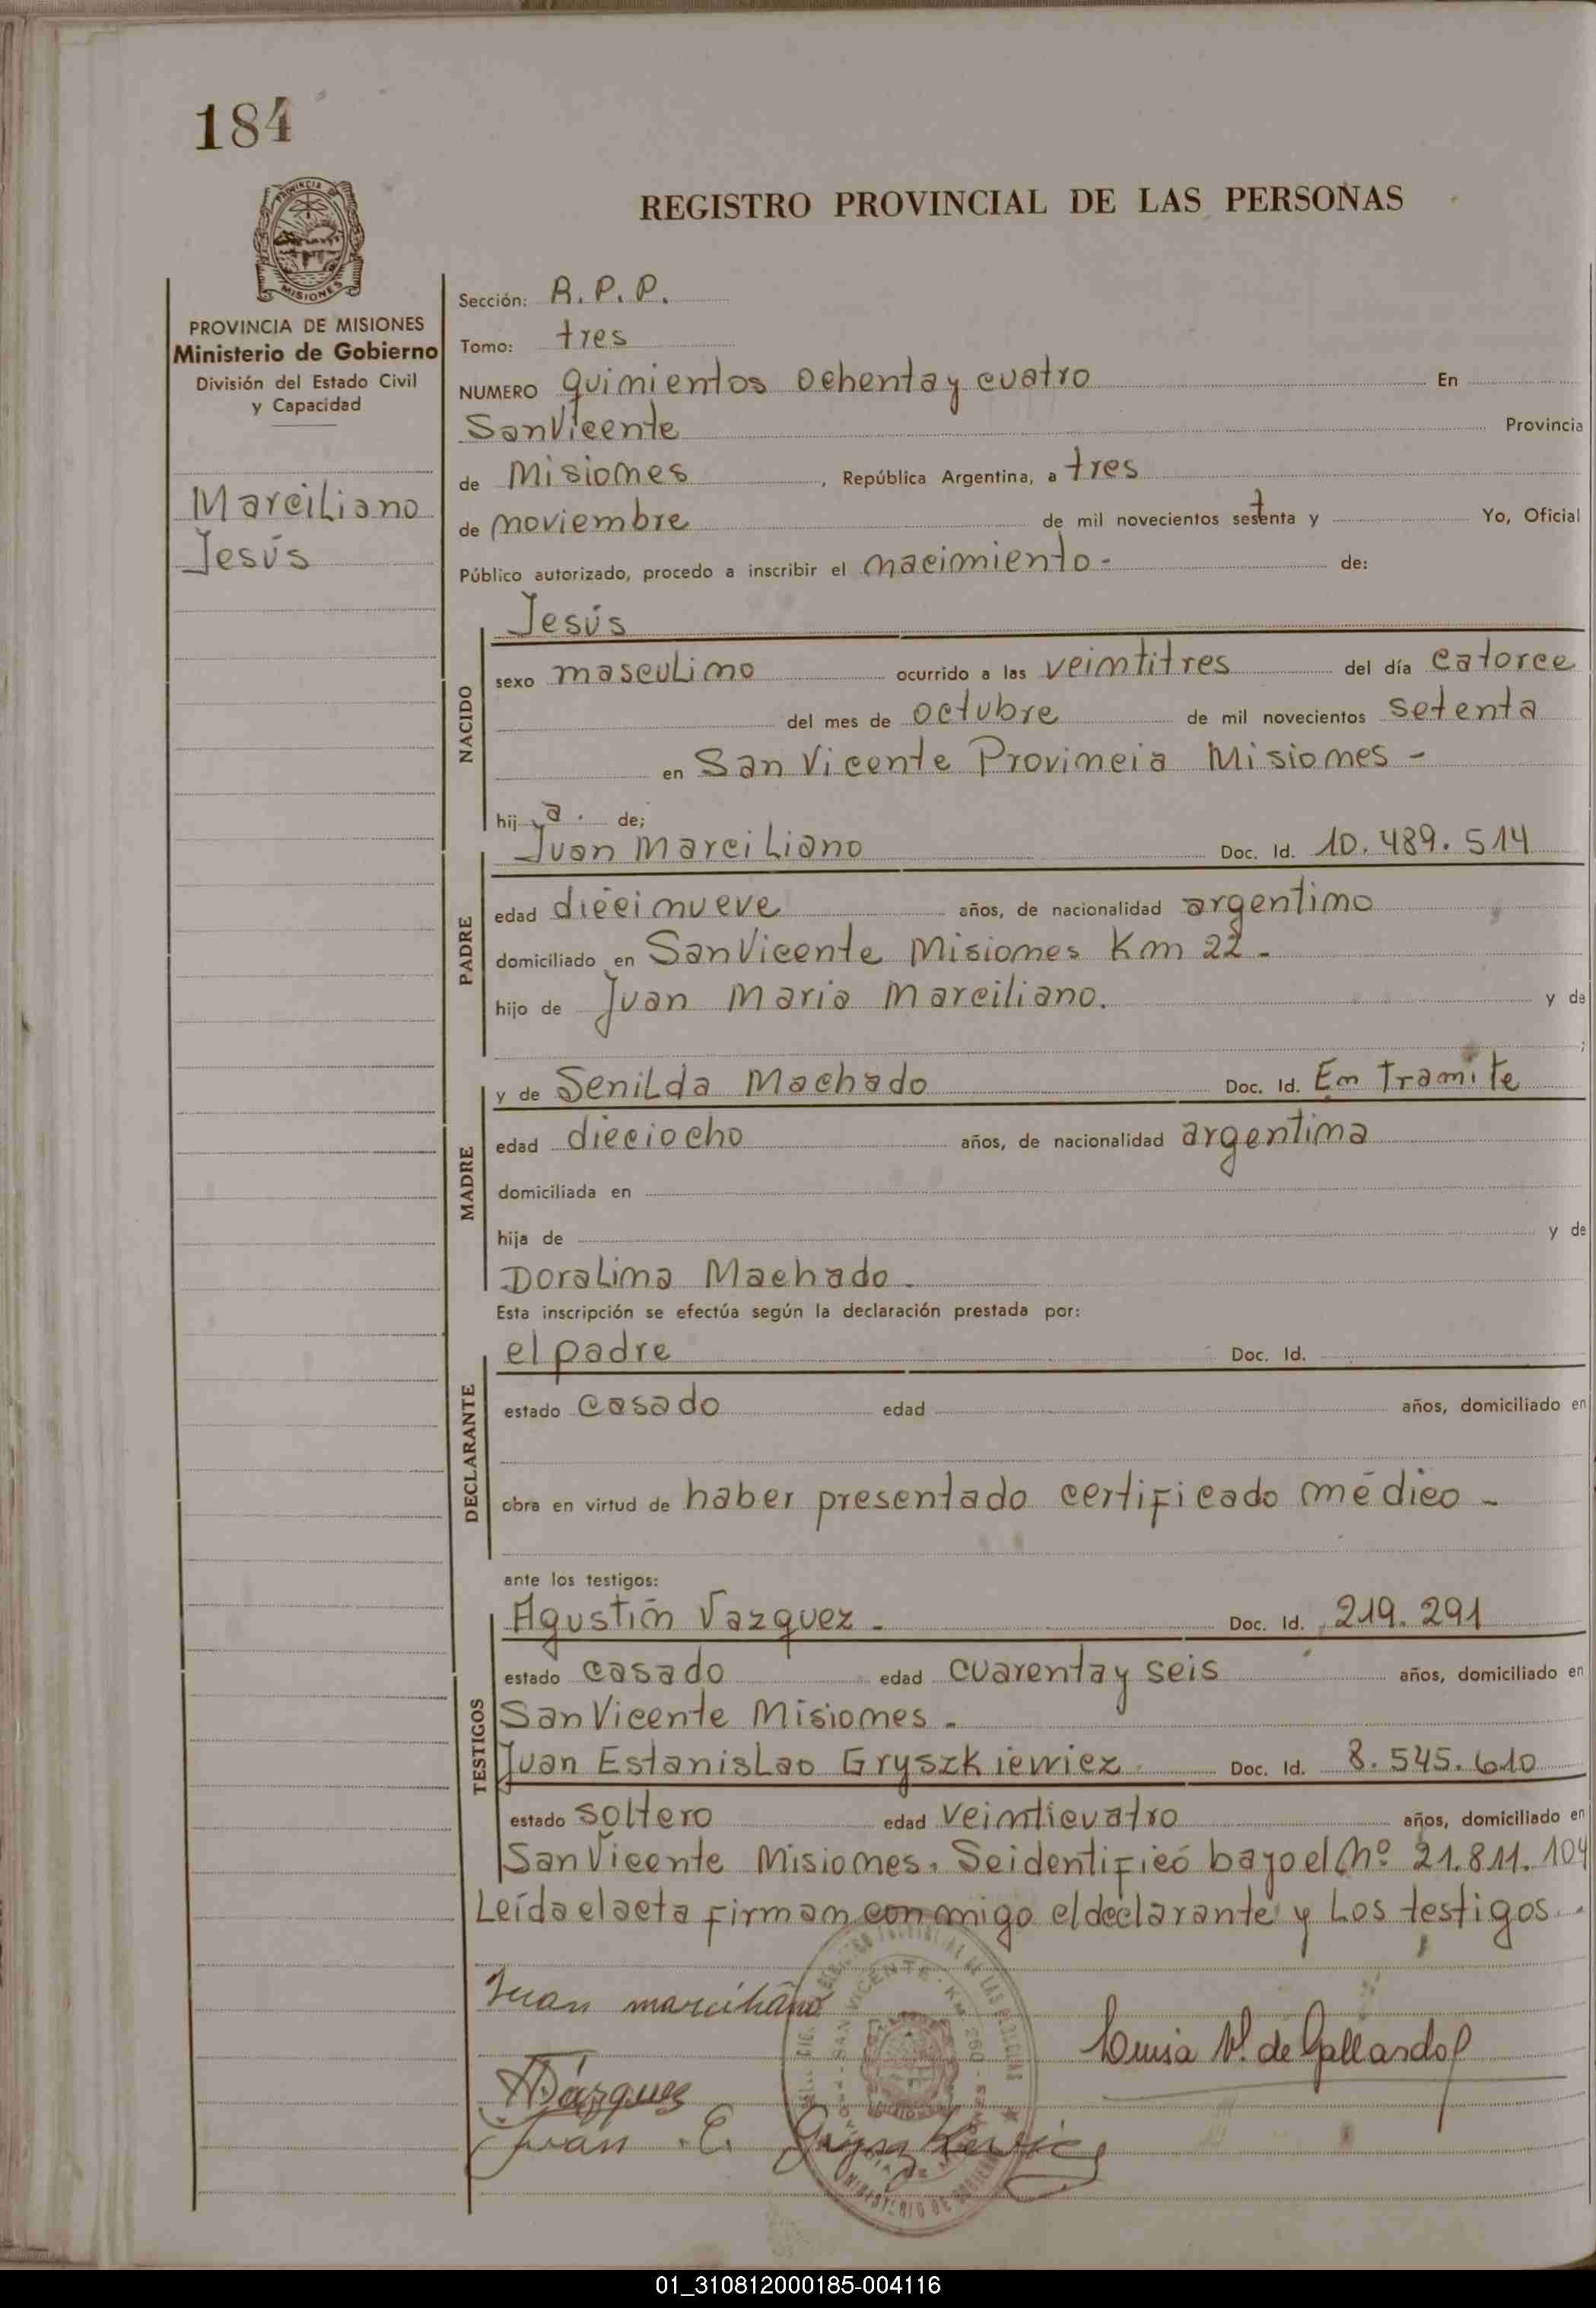 184
REGISTRO PROVINCIAL DE LAS PERSONAS
PROVINCIA DE MISIONES
Ministerio de Gobierno
División del Estado Civil
y Capacidad
Marciliano
Jesús
Sección: R. P. P.
Tomo: tres
NUMERO quinientos ochenta y cuatro En
San Vicente Provincia
de Misiones, República Argentina, a tres
de noviembre de mil novecientos setenta y Yo, Oficial
Público autorizado, procedo a inscribir el nacimiento - de:
NACIDO
Jesús
sexo masculino ocurrido a las veintitres del día catorce
del mes de octubre de mil novecientos setenta
en San Vicente Provincia Misiones -
hij a. de;
PADRE
Juan Marciliano Doc. Id. 10.489.514
edad diecinueve años, de nacionalidad argentino
domiciliado en San Vicente Misiones Km 22 -
hijo de Juan Maria Marciliano. y de
;
MADRE
y de Senilda Machado Doc. Id. En Tramite
edad dieciocho años, de nacionalidad argentina
domiciliada en
hija de y de
Doralina Machado -
Esta inscripción se efectúa según la declaración prestada por:
DECLARANTE
el padre Doc. Id.
estado casado edad años, domiciliado en
obra en virtud de haber presentado certificado médico -
ante los testigos:
TESTIGOS
Agustín Vazquez - Doc. Id. 219.291
estado casado edad cuarenta y seis años, domiciliado en
San Vicente Misiones -
Juan Estanislao Gryszkiewiez Doc. Id. 8.545.610
estado soltero edad veinticuatro años, domiciliado en
San Vicente Misiones. Se identificó bajo el Nº 21.811.104
Leída el acta firman conmigo el declarante y los testigos.
Juan marciliano
Luisa V. de Gallardo
Vázquez
Juan E.
SAN VICENTE - KM 260
MINISTERIO DE GOBIERNO
01_310812000185-004116